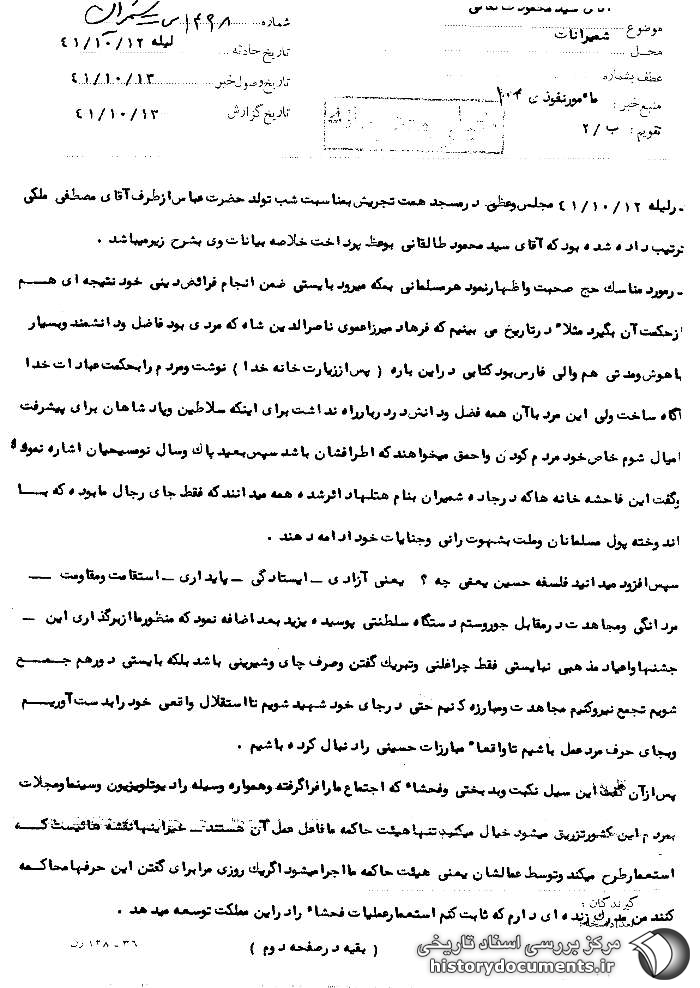 آقای سید محمود طالقانی
موضوع شمیرانات
محل
عطف بشماره
منبع خبر: مأمور نفوذی ۱۰۰۴
تقویم: ب/۲
شماره ۱۴۹۸/س شمیران
تاریخ حادثه لیله ۴۱/۱۰/۱۲
تاریخ وصول خبر ۴۱/۱۰/۱۳
تاریخ گزارش ۴۱/۱۰/۱۳
خیلی محرمانه
درلیله ۴۱/۱۰/۱۲ مجلس وعظی درمسجد همت تجریش بمناسبت شب تولد حضرت عباس ازطرف آقای مصطفی ملکی
ترتیب داده شده بود که آقای سید محمود طالقانی بوعظ پرداخت خلاصه بیانات وی بشرح زیرمیباشد .
درمورد مناسك حج صحبت واظهارنمود هرمسلمانی بمکه میرود بایستی ضمن انجام فرائض دینی خود نتیجه ای هـم
ازحکمت آن بگیرد مثلاً درتاریخ می بینیم که فرهاد میرزاعموی ناصرالدین شاه که مردی بود فاضل ودانشمند وبسیار
باهوش ومدتی هم والی فارس بود کتابی دراین باره ( پس اززیارت خانه خدا ) نوشت ومردم رابحکمت عبادات خدا
آگاه ساخت ولی این مرد باآن همه فضل ودانش دردرباررا‌ه نداشت برای اینکه سلاطین وپادشاهان برای پیشرفت
امیال شوم خاص خود مردم کودن واحمق میخواهند که اطرافشان باشد سپس بعید پاك وسال نومسیحیان اشاره نمود
وگفت این فاحشه خانه هاکه درجاده شمیران بنام هتلهادائرشده همه میدانند که فقط جای رجال مابوده که بـا
اندوخته پول مسلمانان وملت بشهوت رانی وجنایات خود ادامه دهند .
سپس افزود میدانید فلسفه حسین یعنی چه ؟ یعنی آزادی ـ ایستادگی ـ پایداری ـ استقامت ومقاومت ـ
مردانگی ومجاهدت درمقابل جوروستم دستگاه سلطنتی پوسیده یزید بعد اضافه نمود که منظورماازبرگذاری این ـ
جشنهاواعیاد مذهبی نبایستی فقط چراغانی وتبریك گفتن وصرف چای وشیرینی باشد بلکه بایستی دورهم جـمـع
شویم تجمع نیروکنیم مجاهدت ومبارزه کنیم حتی درجای خود شهید شویم تااستقلال واقعی خود رابدست آوریـم
وبجای حرف مرد عمل باشیم تاواقعاً مبارزات حسینی رادنبال کرده باشیم .
پس ازآن گفت این سیل نکبت وبدبختی وفحشاء که اجتماع مارافراگرفته وهمواره وسیله رادیوتلویزیون وسینماومجلات
بمردم این کشورتزریق میشود خیال میکنید تنهاهیئت حاکمه مافاعل عمل آن هستند ـ غیرازاینهانقشه هائیست کـه
استعمارطرح میکند وتوسط عمالشان یعنی هیئت حاکمه مااجرامیشود اگریك روزی مرابرای گفتن این حرفهامحاکمه
کنند من مدرك زنده ای دارم که ثابت کنم استعمارعملیات فحشاء رادراین مملکت توسعه میدهد .
گیرندگان :
تعداد نسخه:
( بقیه درصفحه دوم )
۳۶ - ۱۲۸ رن
مرکز بررسی اسناد تاریخی
historydocuments.ir